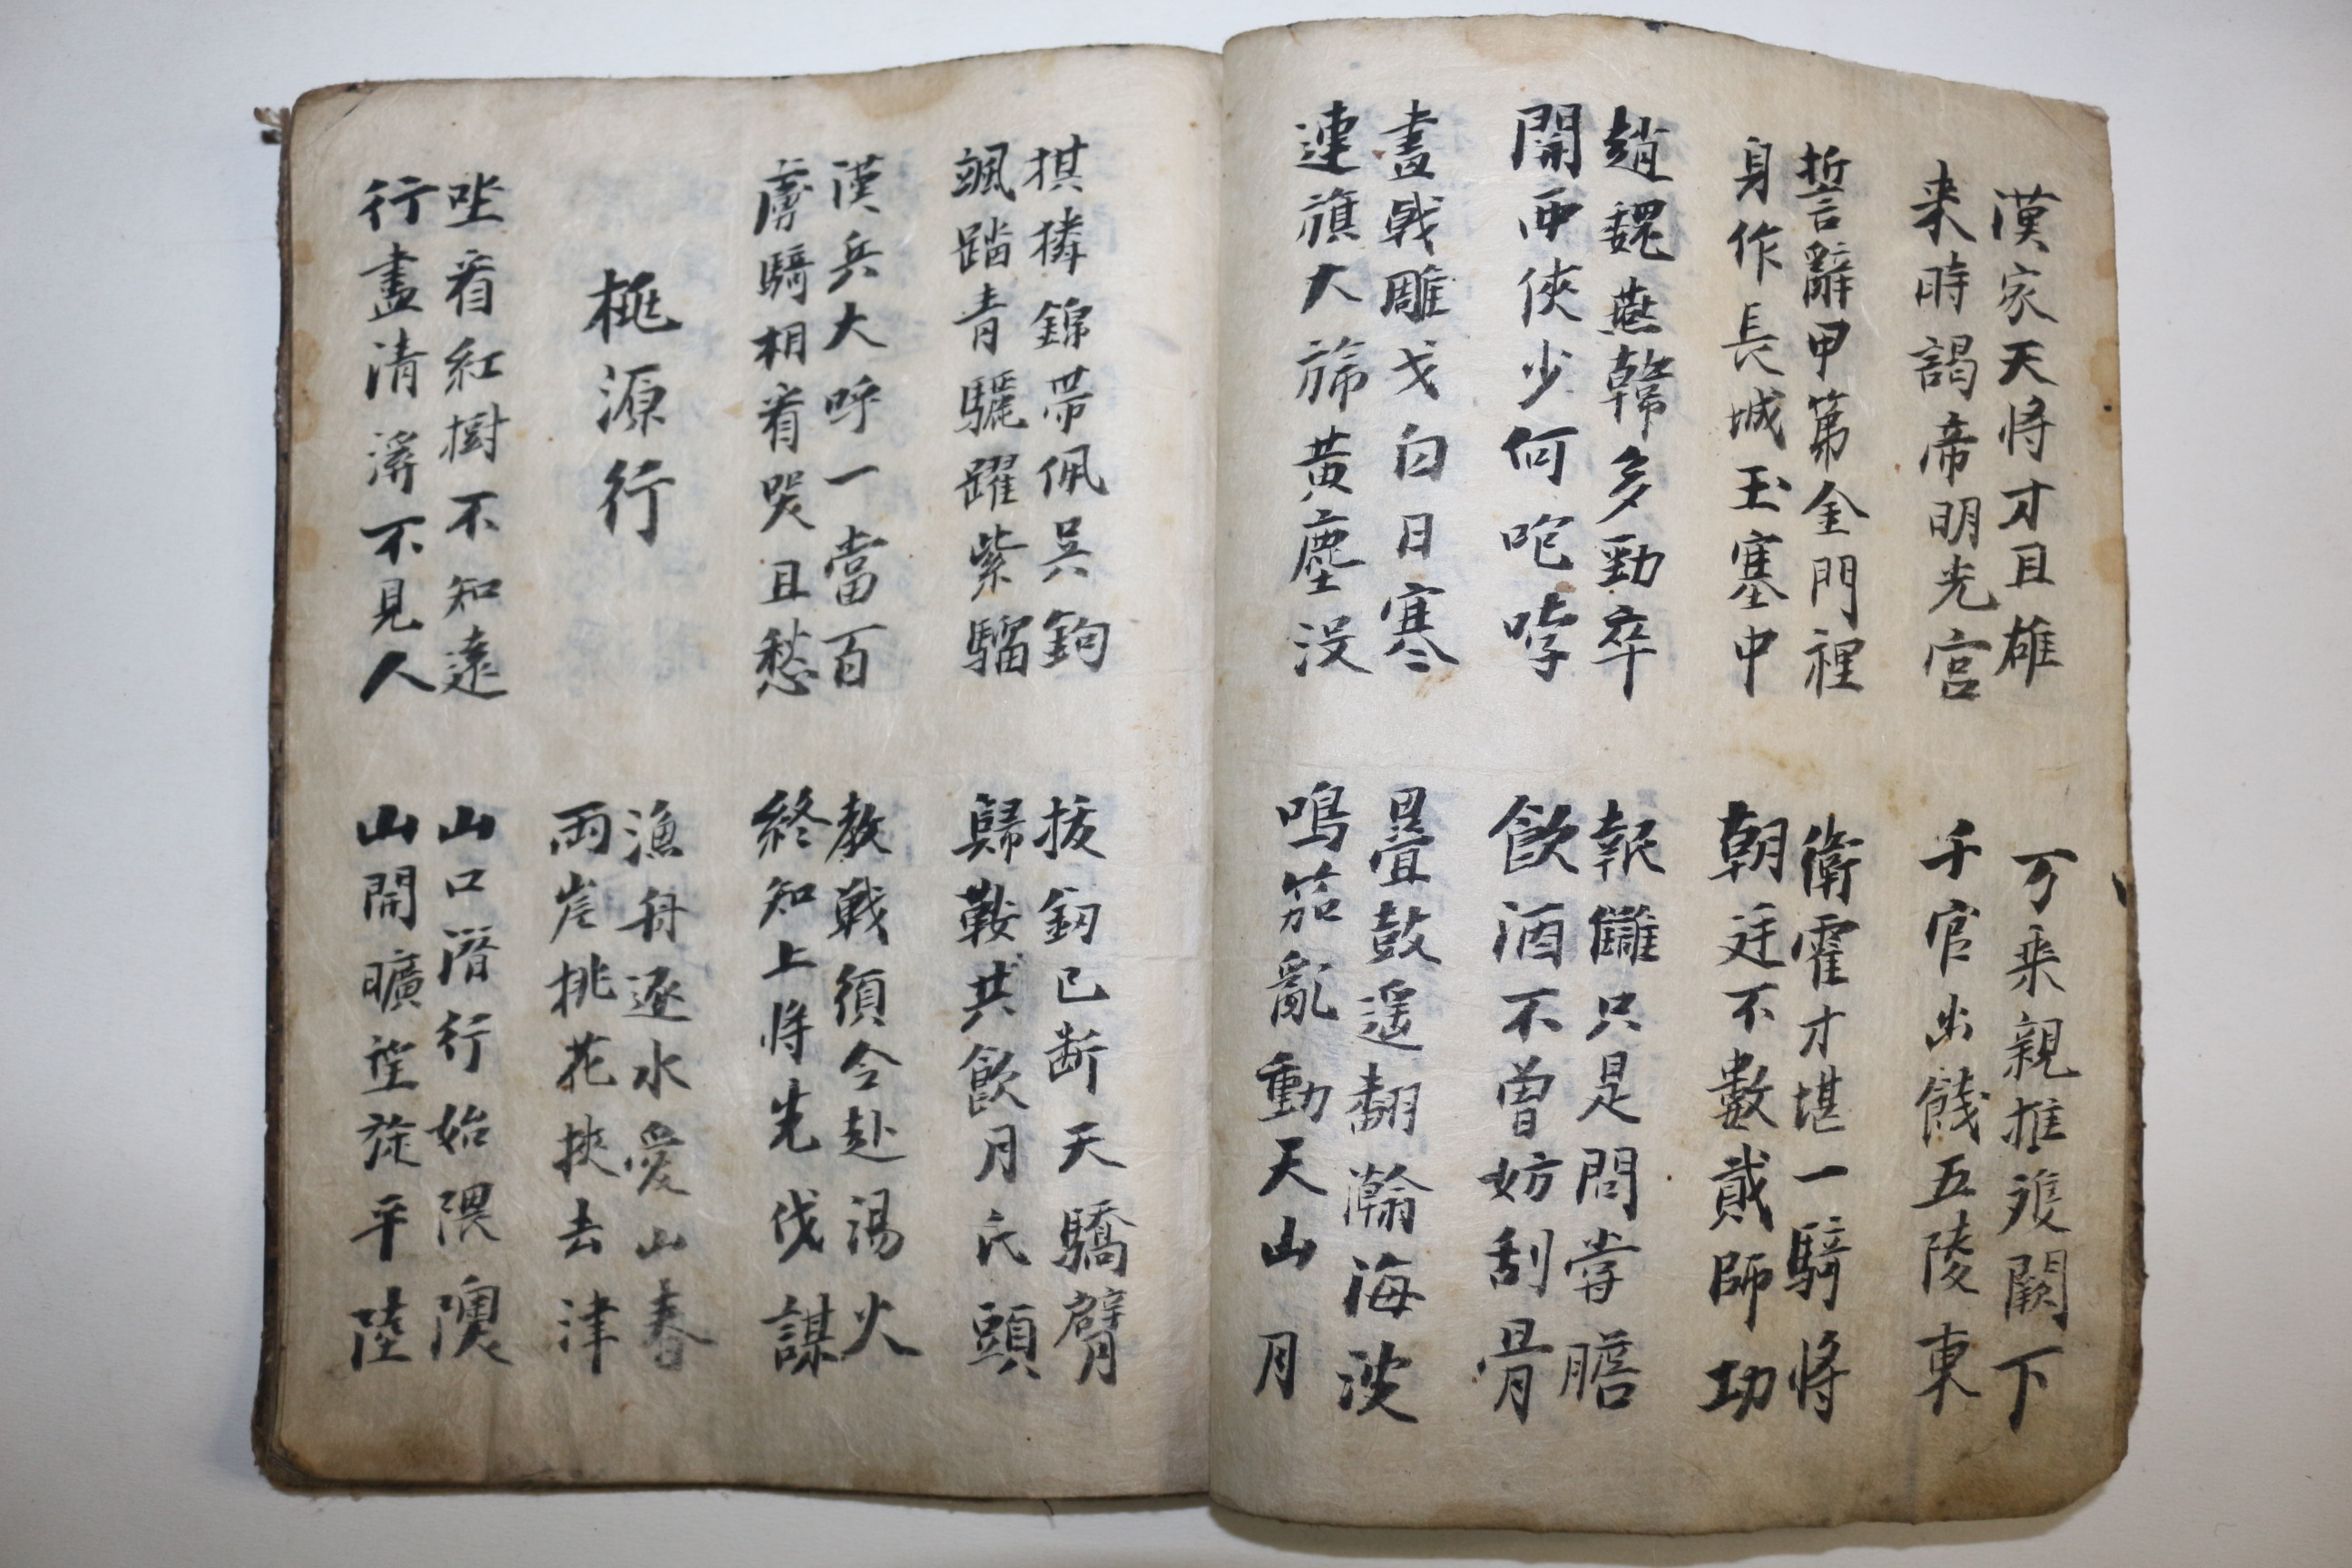 漢家天將才且雄
来時謁帝明光宮
万乘親推雙闕下
千官出餞五陵東
誓辭甲第金門裡
身作長城玉塞中
衛霍才堪一騎將
朝廷不數貳師功
趙魏燕韓多勁卒
開西俠少何咆哱
報讎只是問嘗膽
飲酒不曾妨刮骨
畫戟雕戈白日寒
連旗大旆黃塵沒
疊鼓遥翻瀚海波
鳴笳亂動天山月
棋獜錦帶佩吳鉤
颯踏青驪躍紫騮
拔釖已断天驕臂
歸鞍共飲月氏頭
漢兵大呼一當百
虜騎相看哭且愁
教戰須令赴湯火
終知上將先伐謀
桃源行
漁舟逐水愛山春
兩岸桃花挾去津
坐看紅樹不知遠
行盡清溪不見人
山口潛行始隈隩
山開曠望旋平陸